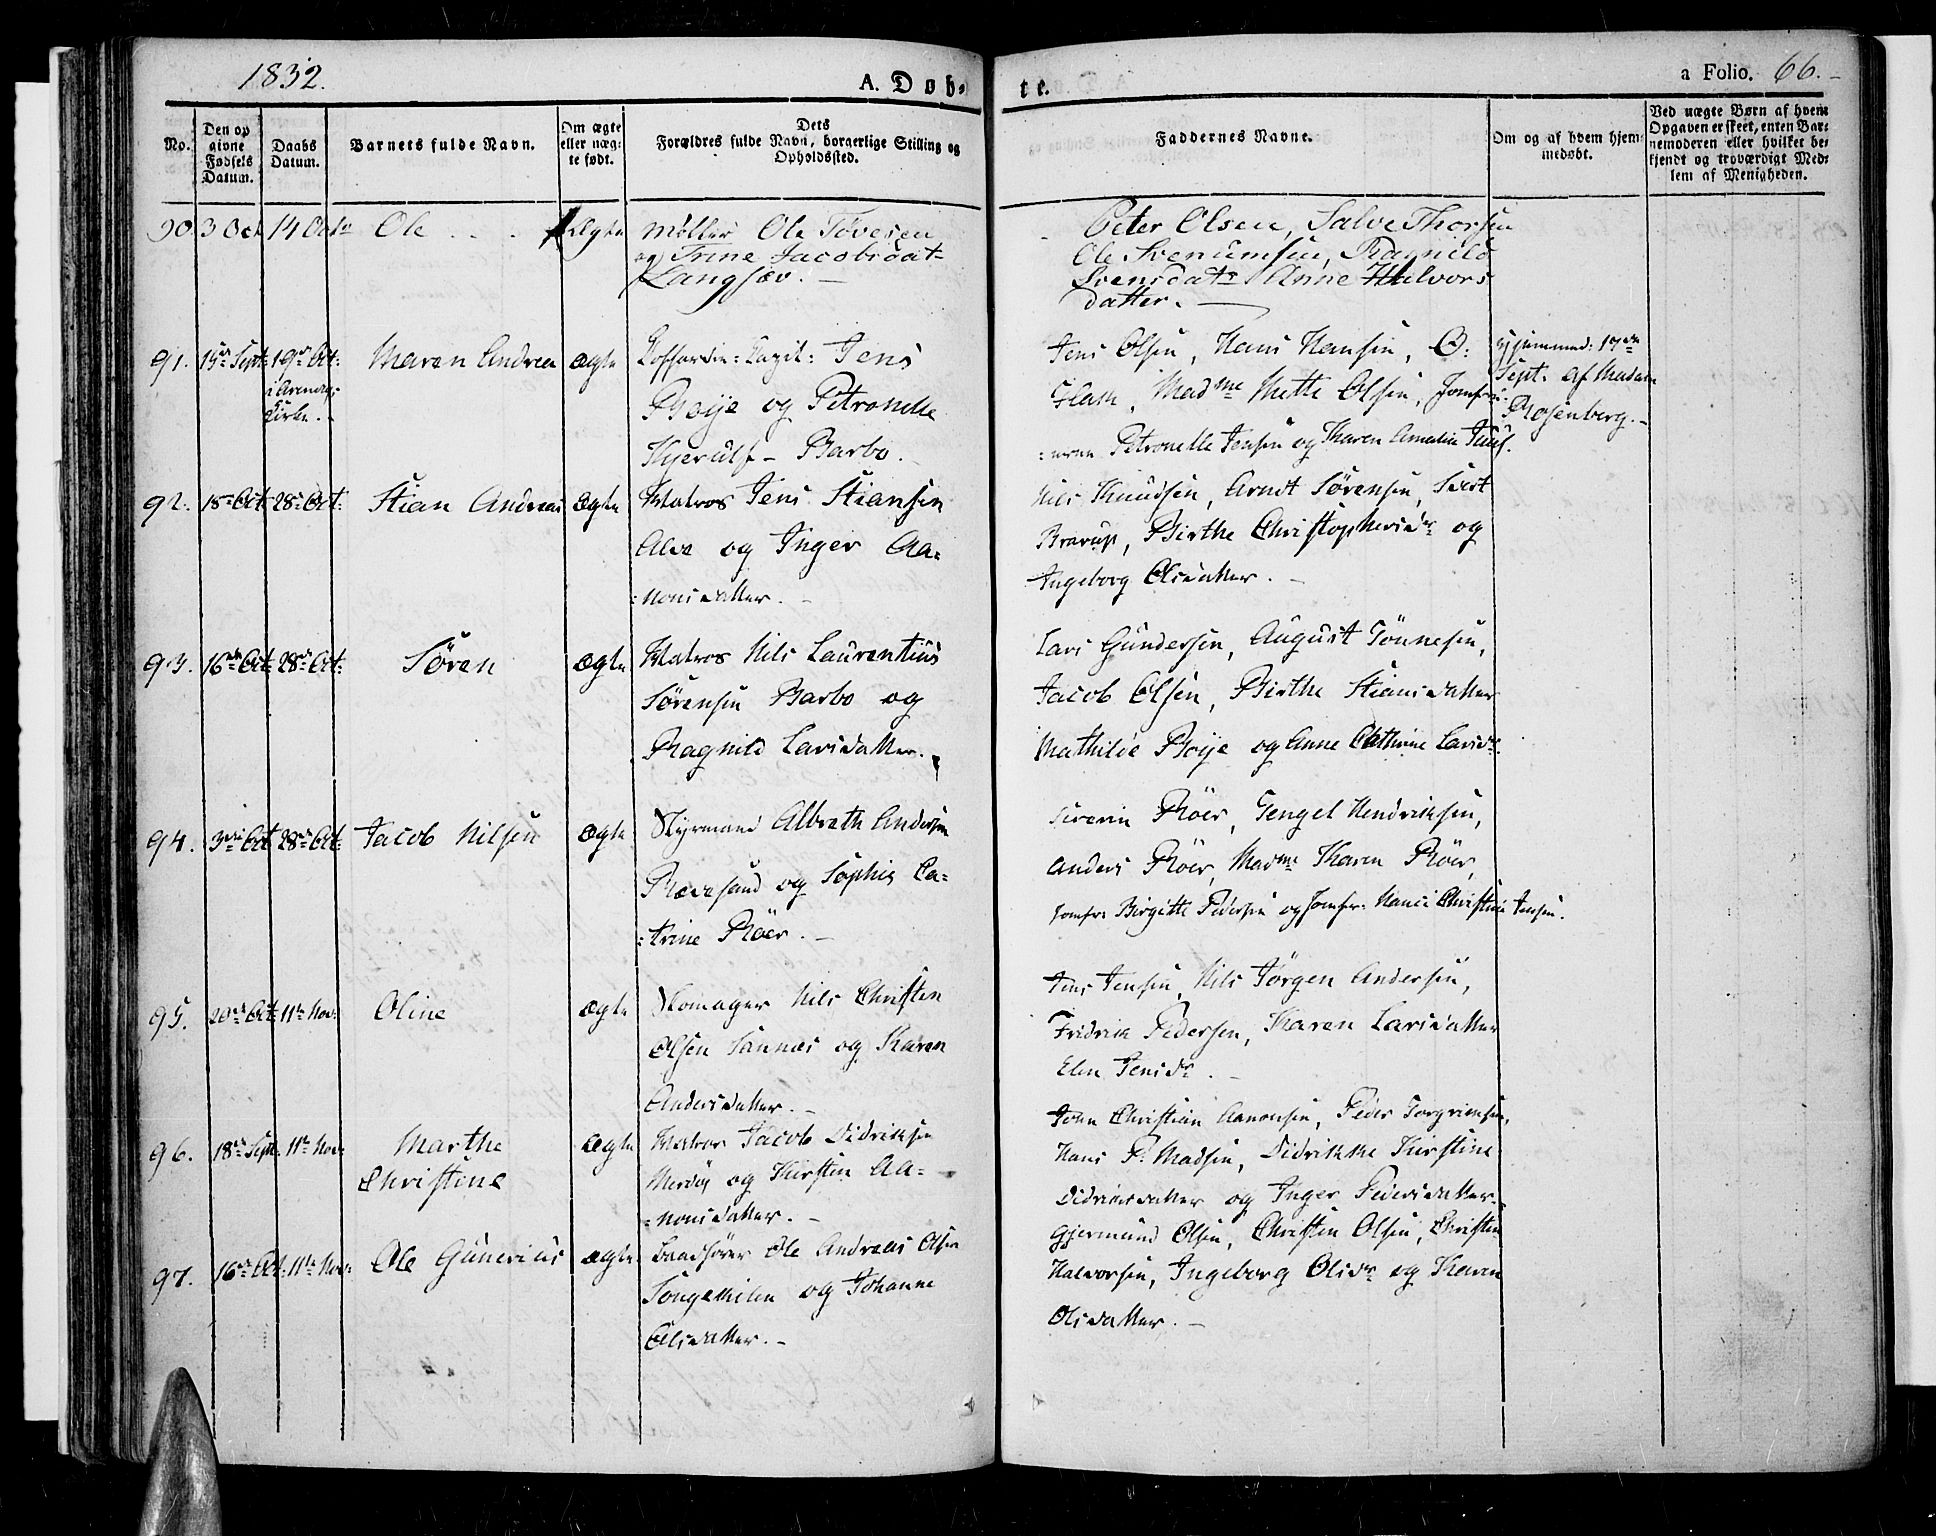 1832.
A. Døb-
te.
a Folio. 66.
No.
Den op
givne
Fødsels
Datum.
Daabs
Datum.
Barnets fulde Navn.
Om ægte
eller uæg-
te født.
Dets
Forældres fulde Navn, borgerlige Stilling og
Opholdssted.
Faddernes Navne.
Om og af hvem hjem-
medøbt.
Ved uægte Børn af hvem
Opgaven er skeet, enten Bar-
nemoderen eller hvilket be-
kjendt og troværdigt Med-
lem af Menigheden.
90. 3 Oct 14 Octr Ole Ægte Møller Ole Tovesen
og Trine Jacobsdat-
Langsæv.
Peter Olsen, Salve Thorsen
Ole Svenumsen, Ragnild
Svensdatr Anne Halvors
datter.
91. 15de Sept: 19de Oct:
i Arendals
Kirke.
Maren Andrea ægte Coffardie: Capit: Jens
Boye og Petronelle
Kjerulf - Barbo.
Jens Olsen, Hans Hansen, O:
Madme Mette Olsen, Jomfru-
=erne Petronelle Jensen og Karen Amalia Juul.
Hjemmed: 17de
Sept. af Madam
Rosenberg.
92. 18de Oct 28de Oct: Stian Andreas ægte Matros Jens Stiansen
Alve og Inger Aa-
=nonsdatter.
Nils Knudsen, Arndt Sörensen,
Brarup, Birthe Christophersdr og
Ingeborg Olsdatter.
93. 16de Oct: 28de Oct: Sören ægte Matros Nils Laurentius
Sörensen Barbo og
Ragnild Larsdatter.
Lars Gundersen, August Tönnesen,
Jacob Olsen, Birthe Stiansdatter
Mathilde Boye og Anne Cathrine Larsdr.
94. 3die Oct 28de Oct: Jacob Nilsen ægte Styrmand Albreth Andersen
Revesand og Sophie Ca-
=trine Röer.
Severin Röer, Tengel Hendriksen,
Anders Röer, Madme Karen Röer,
Jomfr: Birgitte Pedersen og Jomfr: Hanee Christine Jensen.
95. 20de Oct: 11te Nov: Oline ægte Skomager Nils Christen
Olsen Sannæs og Karen
Andersdatter.
Jens Jensen, Nils Jörgen Andersen,
Fridrik Pedersen, Karen Larsdatter
Elen Jensdr.
96. 18de Sept. 11te Nov: Marthe
Christine
ægte Matros Jacob Didriksen
Merdöe og Kirsten Aa-
=nonsdatter.
John Christian Aanonsen, Peder Torgrimsen,
Hans P. Madsen, Didrikke Kirstine
Didriksdatter og Inger Pedersdatter.
97. 16de Oct: 11te Nov: Ole Gunerius ægte Baadförer Ole Andreas Olsen
Songekilen og Johanne
Olsdatter.
Gjermund Olsen, Christen Olsen, Christen
Halvorsen, Ingeborg Olsdr og Karen
Olsdatter.